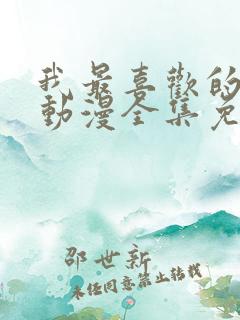 我最喜歡的
動漫全集免
邵世新
未经同意禁止转载